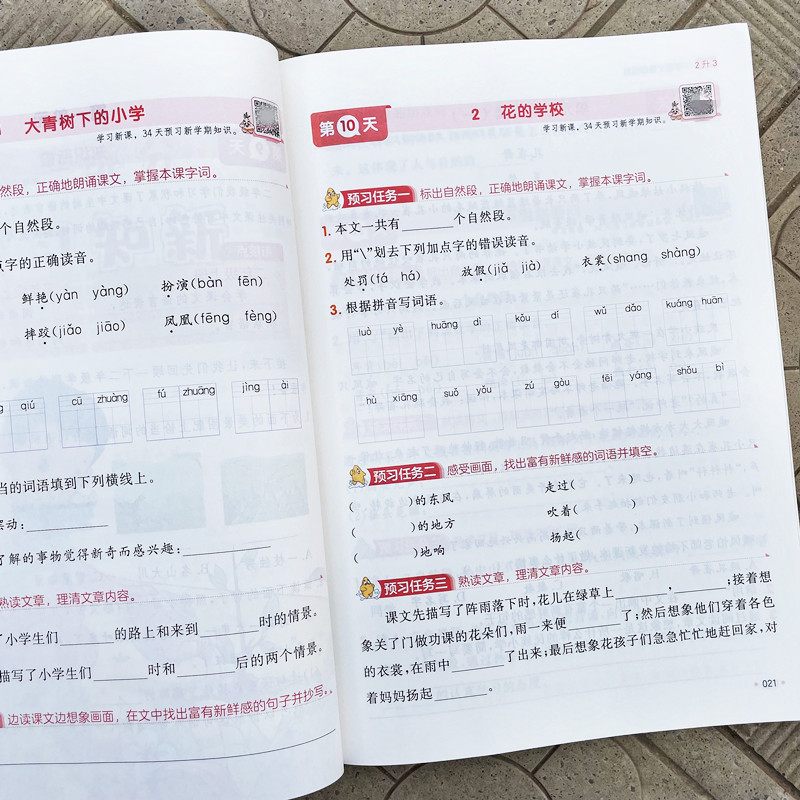 大青树下的小学
学习新课，34天预习新学期知识。
然段，正确地朗诵课文，掌握本课字词。
自然段。
点字的正确读音。
鲜艳(yàn yàng) 扮演(bàn fēn)
摔跤(jiǎo jiāo) 凤凰(fēng fèng)
qiú cū zhuàng fú zhuāng jìng ài
当的词语填到下列横线上。
动：
了解的事物觉得新奇而感兴趣：
熟读文章，理清文章内容。
了小学生们______的路上和来到______时的情景。
描写了小学生们______时和______后的两个情景。
边读课文边想象画面，在文中找出富有新鲜感的句子并抄写。
2升3
第10天 2 花的学校
学习新课，34天预习新学期知识。
预习任务一 标出自然段，正确地朗诵课文，掌握本课字词。
1. 本文一共有______个自然段。
2. 用“\”划去下列加点字的错误读音。
处罚(fá há) 放假(jiǎ jià) 衣裳(shang shàng)
3. 根据拼音写词语。
luò yè huāng dì kǒu dí wǔ dǎo kuáng huān
hù xiāng suǒ yǒu zú gòu fēi yáng shǒu bì
预习任务二 感受画面，找出富有新鲜感的词语并填空。
( )的东风 走过( )
( )的地方 吹着( )
( )地响 扬起( )
预习任务三 熟读文章，理清文章内容。
课文先描写了阵雨落下时，花儿在绿草上______，______；接着想
象关了门做功课的花朵们，雨一来便______了；然后想象他们穿着各色
的衣裳，在雨中______了出来；最后想象花孩子们急急忙忙地赶回家，对
着妈妈扬起______。
021